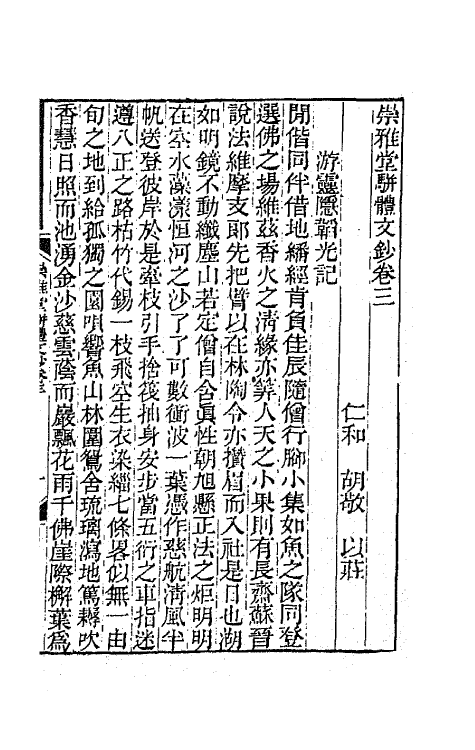 崇雅堂駢體文鈔卷三
仁和　胡敬　以莊
游靈隱韜光記
閒偕同伴借地繙經肯負佳辰隨僧行腳小集如魚之隊同登
選佛之場維茲香火之淸緣亦等人天之小果則有長齋蘇晉
說法維摩支郎先把臂以在林陶令亦攢眉而入社是日也湖
如明鏡不動纖塵山若定僧自含眞性朝旭懸正法之炬明明
在空水藻漾恒河之沙了了可數衝波一葉憑作慈航淸風半
帆送登彼岸於是牽枝引手捨筏抽身安步當五衍之車指迷
遵八正之路枯竹代錫一枝飛空生衣染緇七條畧似無一由
旬之地到給孤獨之園唄響魚山林圍鴛舍琉璃瀉地篤耨吹
香慧日照而池湧金沙慈雲蔭而巖飄花雨千佛崖際檞葉爲
崇雅堂駢體文鈔卷三